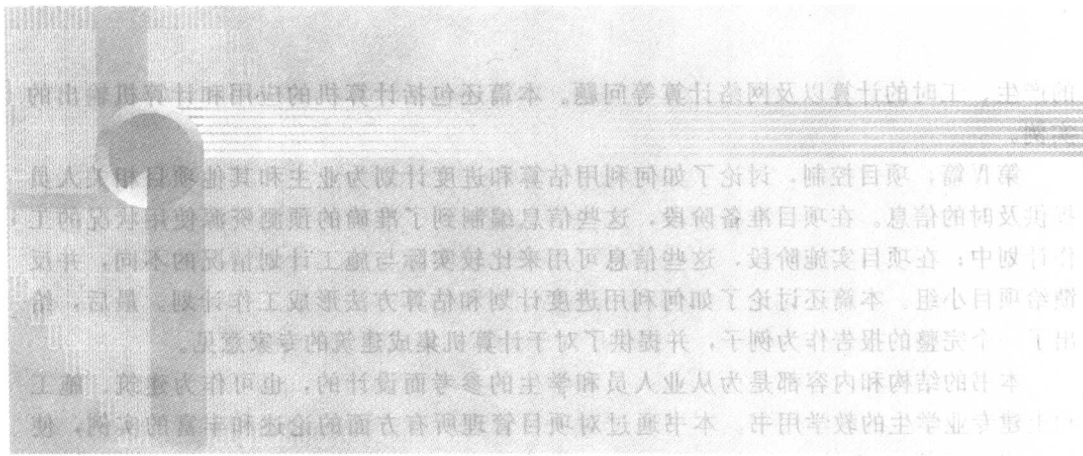 的产生、工时的计算以及网络计算等问题。本篇还包括计算机的应用和计算机输出的
第Ⅳ篇，项目控制，讨论了如何利用估算和进度计划为业主和其他项目相关人员
提供及时的信息。在项目准备阶段，这些信息编制到了准确的预测资源使用状况的工
作计划中；在项目实施阶段，这些信息可用来比较实际与施工计划情况的不同，并反
馈给项目小组。本篇还讨论了如何利用进度计划和估算方法形成工作计划。最后，给
出了一个完整的报告作为例子，并提供了对于计算机集成建筑的专家意见。
本书的结构和内容都是为从业人员和学生的参考而设计的，也可作为建筑、施工
和土建专业学生的教学用书。本书通过对项目管理所有方面的论述和丰富的实例，使